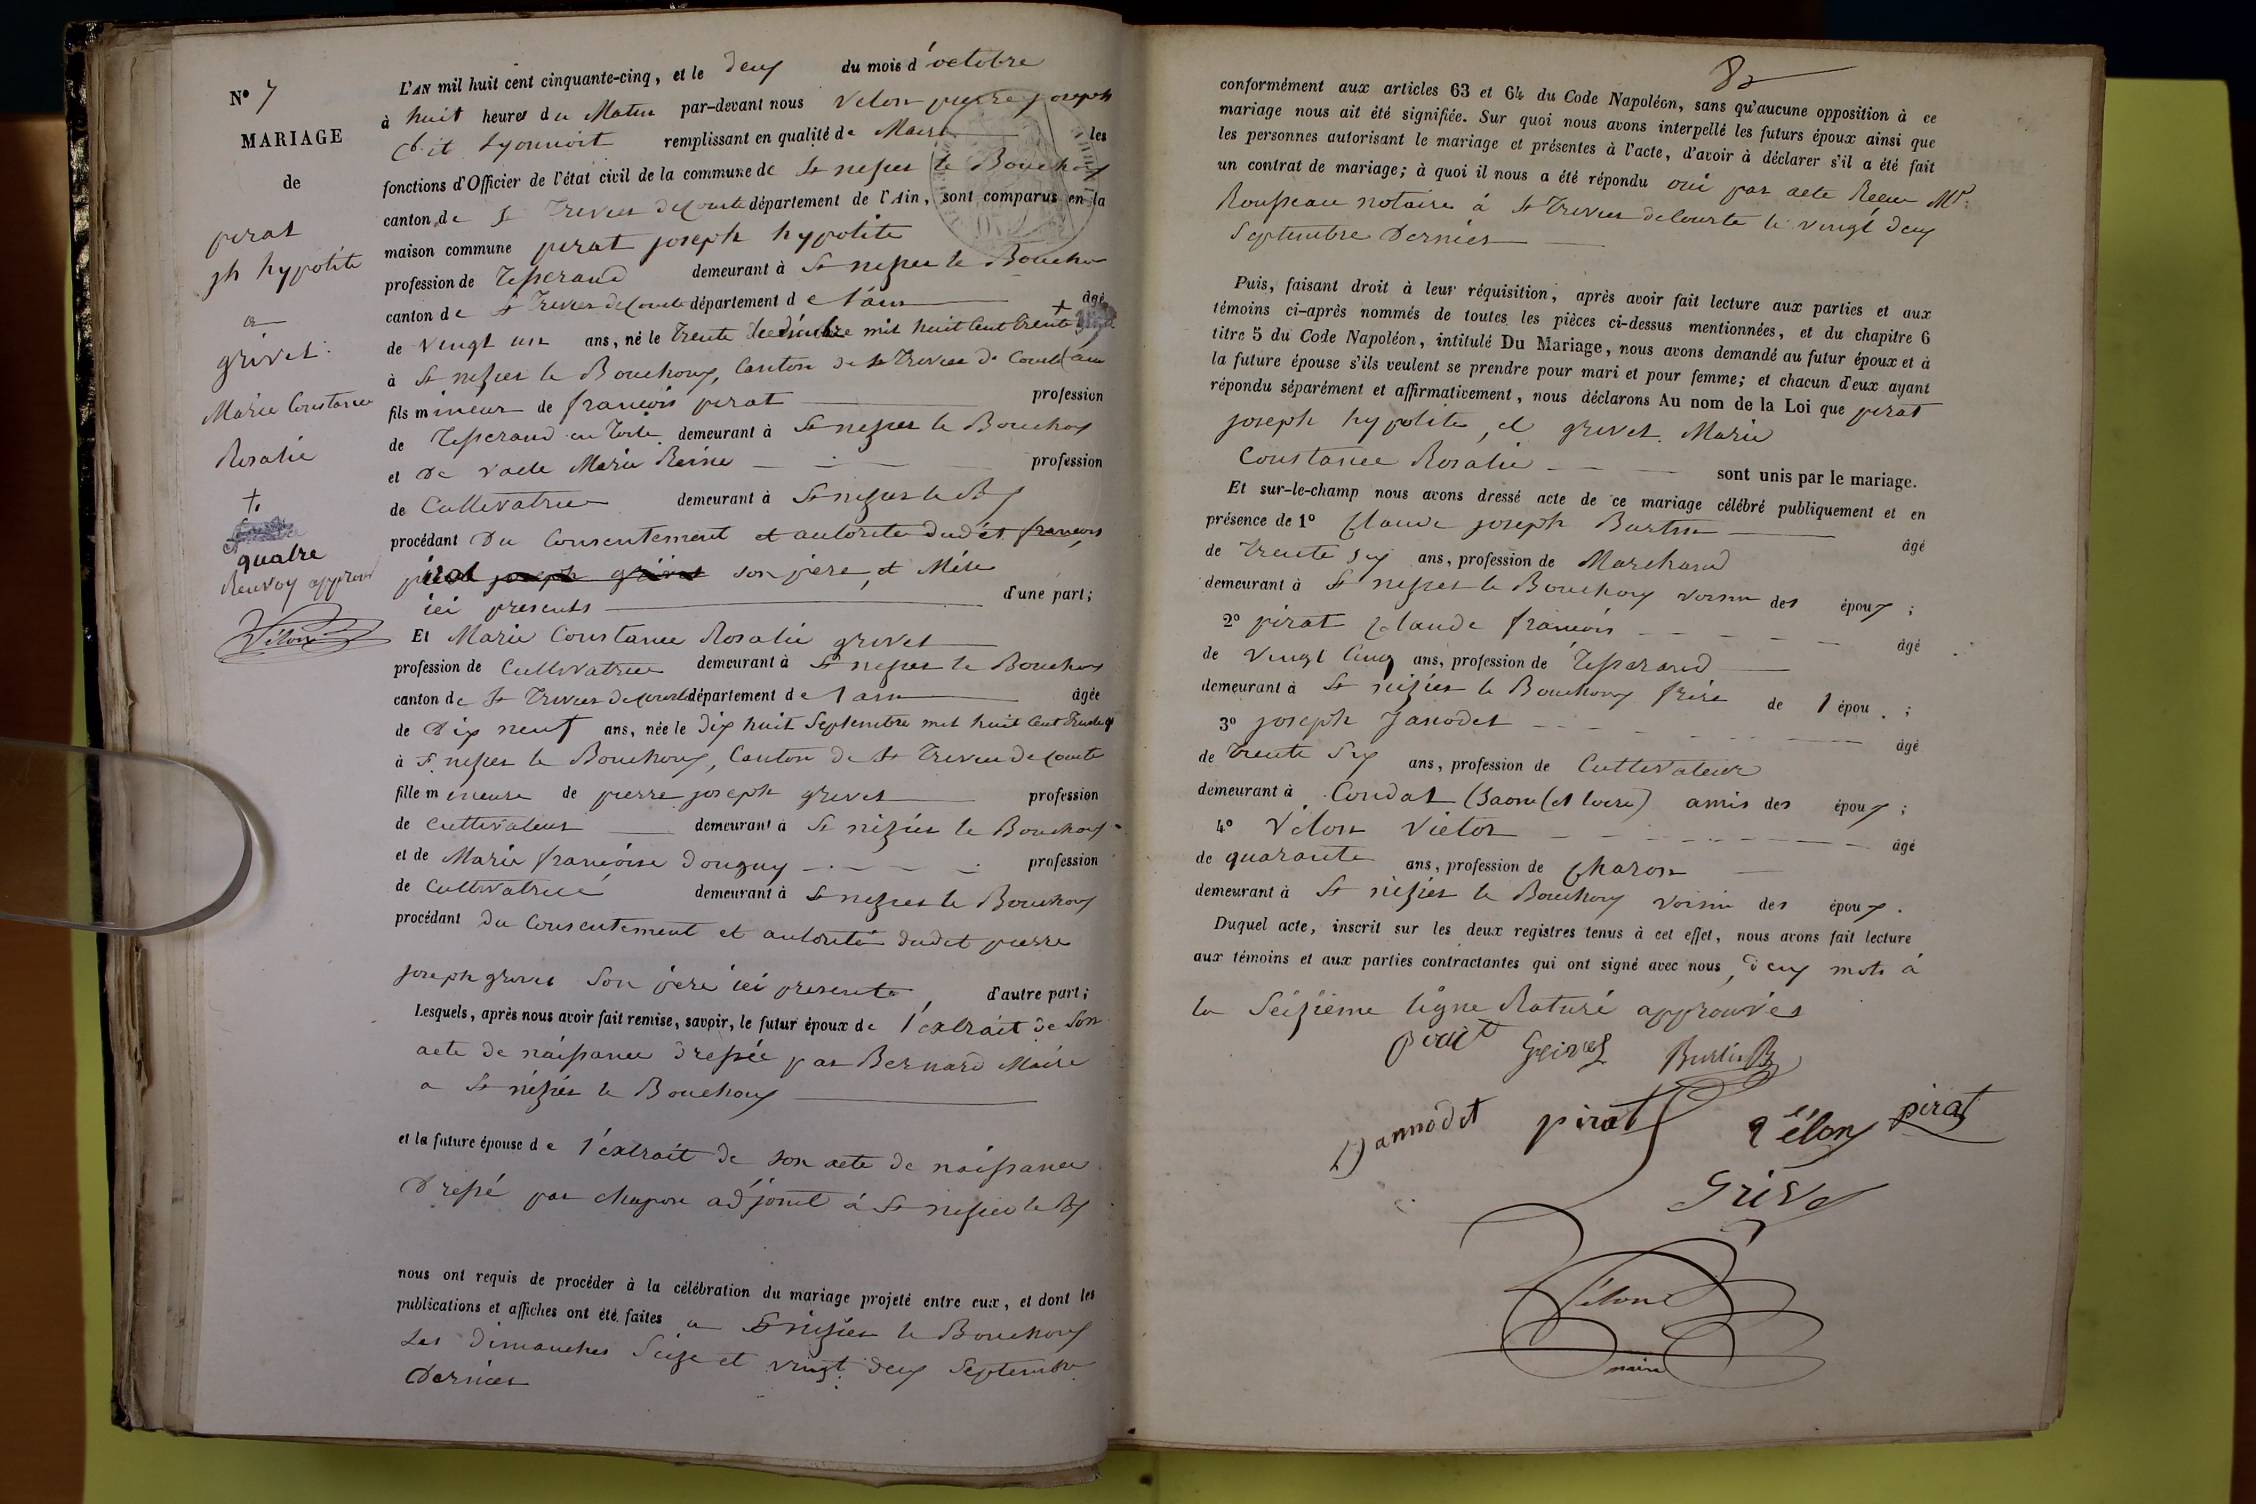 N° 7
MARIAGE
de
pirat
jh hypolite
a
grivet
Marie Constance
Rosalie
+.
quatre
Renvoy approuvé
Vélon
L'AN mil huit cent cinquante-cinq, et le deux du mois d'octobre
à huit heures du Matin par-devant nous Velon pierre joseph
dit Lyonnoit remplissant en qualité de Maire les
fonctions d'Officier de l'état civil de la commune de St nizier le Bouchoux
canton de St Trivier de Courte département de l'Ain, sont comparus en la
maison commune pirat joseph hypolite
profession de Tisserand demeurant à St nizier le Bouchoux
canton de St Trivier de Courte département de l'ain âgé
de vingt un ans, né le trente décembre mil huit Cent trente +
à St nizier le Bouchoux, Canton de St Trivier de Courte ain
fils mineur de françois pirat profession
de Tisserand en toile demeurant à St nizier le Bouchoux
et De vaele Marie Reine profession
de Cultivatrice demeurant à St nizier le Bx
procédant Du Consentement et autorité dudit françois
pirat joseph grivet son père, et Mère
ici présents d'une part;
Et Marie Constance Rosalie grivet
profession de Cultivatrice demeurant à St nizier le Bouchoux
canton de St Trivier de Courte département de l'ain âgée
de Dix neuf ans, née le dix huit Septembre mil huit Cent trente
à St nizier le Bouchoux, Canton de St Trivier de Courte
fille mineure de pierre joseph grivet profession
de Cultivateur demeurant à St nizier le Bouchoux
et de Marie françoise donguy profession
de Cultivatrice demeurant à St nizier le Bouchoux
procédant du Consentement et autorité dudit pierre
joseph grivet Son père ici présente, d'autre part;
Lesquels, après nous avoir fait remise, savoir, le futur époux de l'extrait de Son
acte de naissance dressée par Bernard Maire
a St nizier le Bouchoux
et la future épouse de l'extrait de son acte de naissance
Dressé par chapon adjoint à St nizier le Bx
nous ont requis de procéder à la célébration du mariage projeté entre eux, et dont les
publications et affiches ont été faites a St nizier le Bouchoux
Les dimanches Seize et vingt deux Septembre
Dernier
82
conformément aux articles 63 et 64 du Code Napoléon, sans qu'aucune opposition à ce
mariage nous ait été signifiée. Sur quoi nous avons interpellé les futurs époux ainsi que
les personnes autorisant le mariage et présentes à l'acte, d'avoir à déclarer s'il a été fait
un contrat de mariage; à quoi il nous a été répondu oui par acte Reçu Mr.
Rousseau notaire à St Trivier de Courte le vingt deux
Septembre Dernier
Puis, faisant droit à leur réquisition, après avoir fait lecture aux parties et aux
témoins ci-après nommés de toutes les pièces ci-dessus mentionnées, et du chapitre 6
titre 5 du Code Napoléon, intitulé Du Mariage, nous avons demandé au futur époux et à
la future épouse s'ils veulent se prendre pour mari et pour femme; et chacun d'eux ayant
répondu séparément et affirmativement, nous déclarons Au nom de la Loi que pirat
joseph hypolite, et grivet Marie
Constance Rosalie sont unis par le mariage.
Et sur-le-champ nous avons dressé acte de ce mariage célébré publiquement et en
présence de 1° Claude joseph Burtin âgé
de trente six ans, profession de Marchand
demeurant à St nizier le Bouchoux voisin des époux;
2° pirat Claude françois âgé
de vingt Cinq ans, profession de Tisserand
demeurant à St nizier le Bouchoux frère de l'épou.;
3° joseph Janodet âgé
de trente Six ans, profession de Cultivateur
demeurant à Condat (Saone et loire) amis des époux;
4° Vélon Victor âgé
de quarante ans, profession de Charon
demeurant à St nizier le Bouchoux voisin des époux.
Duquel acte, inscrit sur les deux registres tenus à cet effet, nous avons fait lecture
aux témoins et aux parties contractantes qui ont signé avec nous, deux mots à
la Seizième ligne Raturé approuvés
pirat Grivet Burtin
Jannodet pirat Vélon pirat
Grivet
Vélon
maire